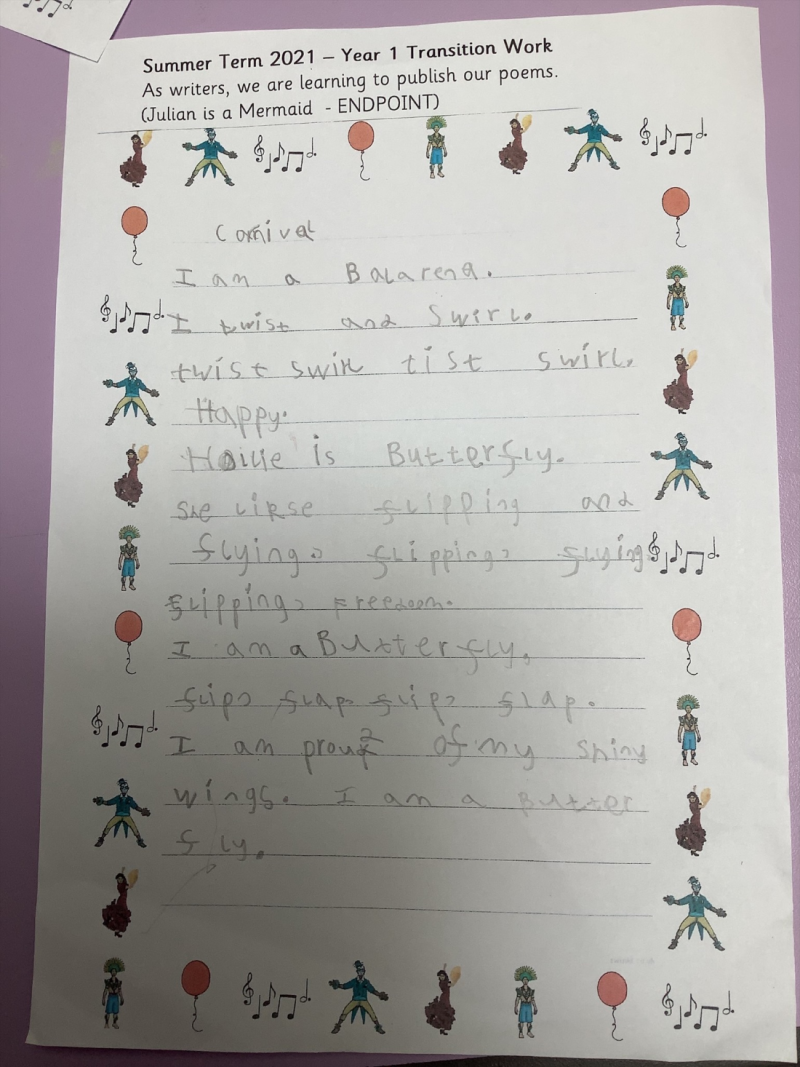 Summer Term 2021 – Year 1 Transition Work
As writers, we are learning to publish our poems.
(Julian is a Mermaid - ENDPOINT)
Carnival
I am a Balarena.
I twist and Swirl.
twist swirl tist swirl.
Happy.
is Butterfly.
She likse flipping and
flying, flipping, flying
flipping, Freedom.
I am a Butterfly,
flip, flap flip, flap.
I am proud of my shiny
wings. I am a Butter
fly.